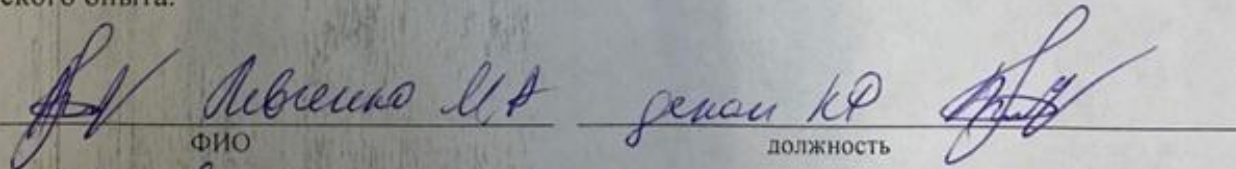 ского опыта.
Левченко М А декан КФ
ФИО должность